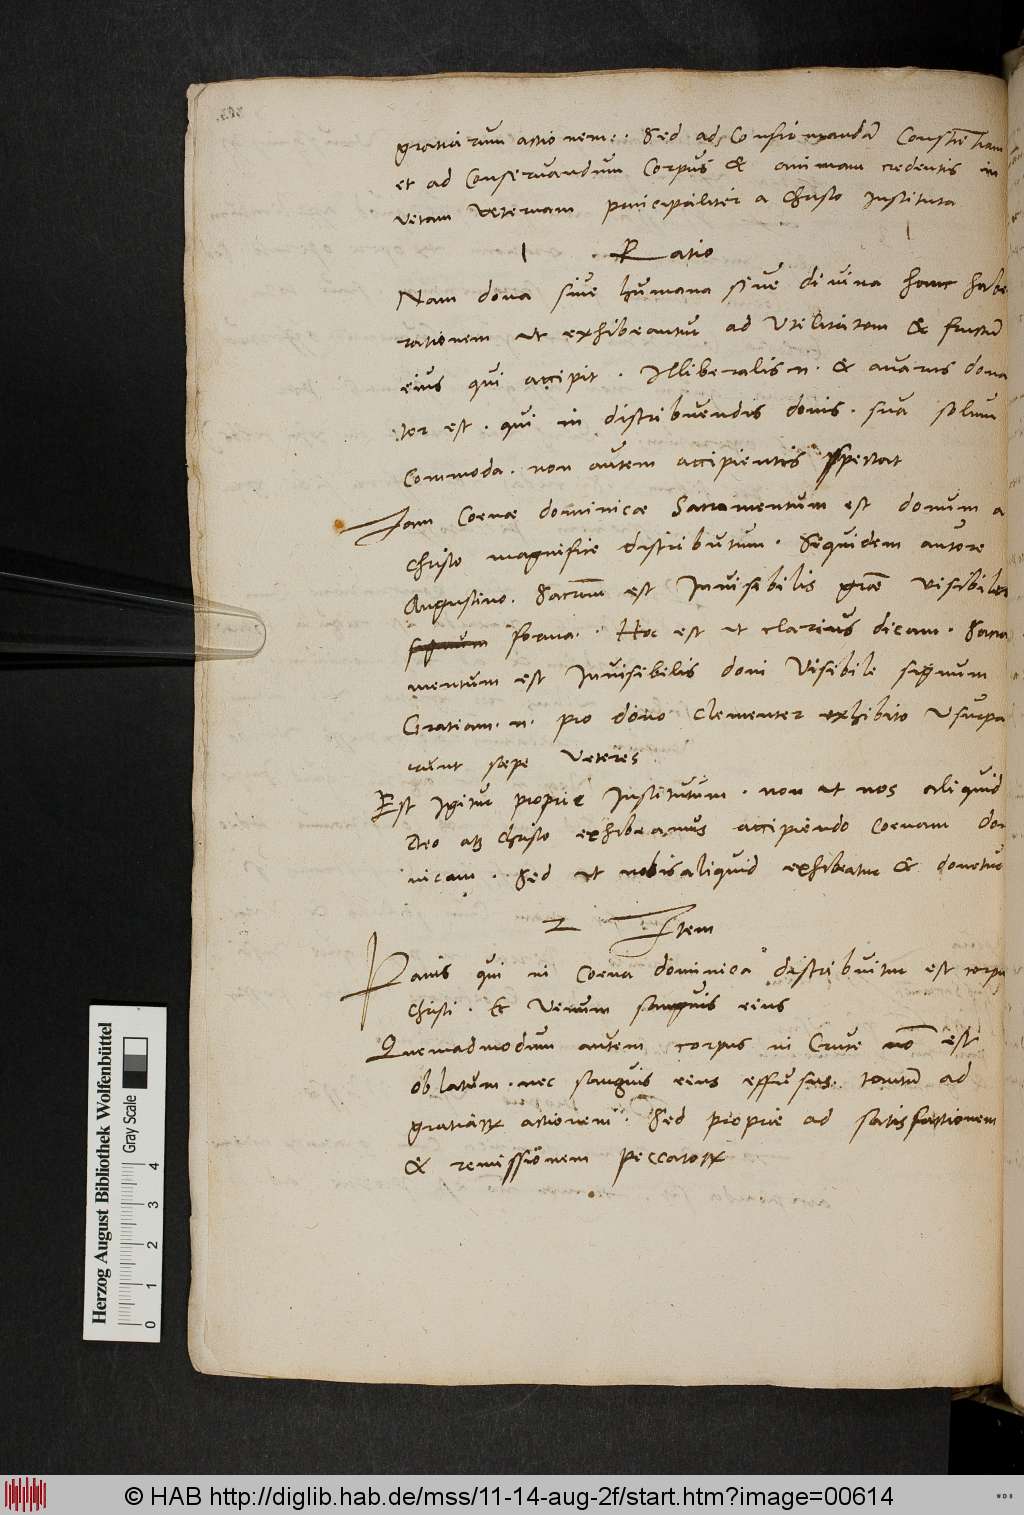 gratiarum actionem: Sed ad Confirmandā Conscientiam
et ad Conservandum Corpus & animam credentis in
vitam æternam principaliter a Christo Instituta
1 Ratio
Nam dona sive humana sive divina hanc habe
rationem ut exhibeantur ad Utilitatem & fructū
eius qui accipit. Illiberalis n. & avarus dona
tor est. qui in distribuendis donis. sua solum
Commoda. non autem accipientis spectat
Jam Coenæ dominicæ Sacramentum est donum a
Christo magnifice distributum. Siquidem autore
Augustino. Sacrm̄ est Invisibilis grāe visibilis
signum forma. Hoc est ut clarius dicam. Sacra
mentum est Invisibilis doni Visibile signum
Gratiam. n. pro dono Clementer exhibito Usurpa
runt sæpe Veteres
Est Igitur proprie Institutum. non ut nos aliquid
Deo atq Christo exhibeamus accipiendo Coenam do
nicam. Sed ut nobis aliquid exhibeatur & donetur
2 Item
Panis qui in Coena dominica distribuitur est corpu
Christi. Et Verum sanguis eius
Quemadmodum autem corpus in Cruce nō est
oblatum. nec sanguis eius effusus. tantū ad
gratiaꝝ actionem. Sed proprie ad satisfactionem
& remissionem Peccatoꝝ
Herzog August Bibliothek Wolfenbüttel
Gray Scale
0 1 2 3 4
© HAB http://diglib.hab.de/mss/11-14-aug-2f/start.htm?image=00614